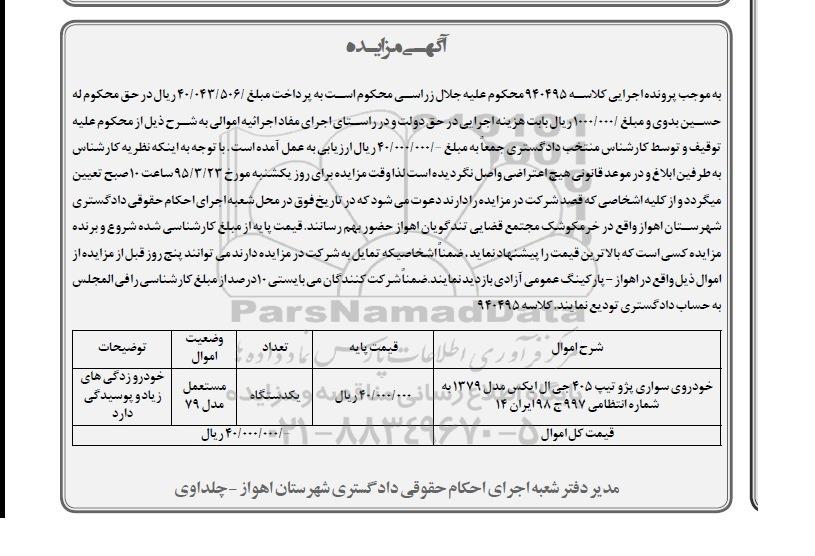 آگهی مزایده
به موجب پرونده اجرایی کلاسه ۹۴۰۴۹۵ محکوم علیه جلال زراسی محکوم است به پرداخت مبلغ /۴۰/۰۴۳/۵۰۶ ریال در حق محکوم له
حسین بدوی و مبلغ /۱۰۰۰/۰۰۰ ریال بابت هزینه اجرایی در حق دولت و در راستای اجرای مفاد اجرائیه اموالی به شرح ذیل از محکوم علیه
توقیف و توسط کارشناس منتخب دادگستری جمعاً به مبلغ -/۴۰/۰۰۰/۰۰۰ ریال ارزیابی به عمل آمده است . با توجه به اینکه نظریه کارشناس
به طرفین ابلاغ و در موعد قانونی هیچ اعتراضی واصل نگردیده است لذا وقت مزایده برای روز یکشنبه مورخ ۹۵/۳/۲۳ ساعت ۱۰ صبح تعیین
میگردد و از کلیه اشخاصی که قصد شرکت در مزایده را دارند دعوت می شود که در تاریخ فوق در محل شعبه اجرای احکام حقوقی دادگستری
شهرستان اهواز واقع در خرمکوشک مجتمع قضایی تندگویان اهواز حضور بهم رسانند. قیمت پایه از مبلغ کارشناسی شده شروع و برنده
مزایده کسی است که بالاترین قیمت را پیشنهاد نماید . ضمناً اشخاصیکه تمایل به شرکت در مزایده دارند می توانند پنج روز قبل از مزایده از
اموال ذیل واقع در اهواز - پارکینگ عمومی آزادی بازدید نمایند.ضمناً شرکت کنندگان می بایستی ۱۰ درصد از مبلغ کارشناسی را فی المجلس
به حساب دادگستری تودیع نمایند. کلاسه ۹۴۰۴۹۵
ParsNamadData
مرکز فرآوری اطلاعات پارس نماد داده ها
شرح اموال قیمت پایه تعداد وضعیت اموال توضیحات
خودروی سواری پژو تیپ ۴۰۵ جی ال ایکس مدل ۱۳۷۹ به شماره انتظامی ۹۹۷ ج ۹۸ ایران ۱۴ ۴۰/۰۰۰/۰۰۰ ریال یکدستگاه مستعمل مدل ۷۹ خودرو زدگی های زیاد و پوسیدگی دارد
پایگاه اطلاع رسانی مناقصه و مزایده
قیمت کل اموال -/۴۰/۰۰۰/۰۰۰ ریال
۰۲۱-۸۸۳۴۹۶۷۰-۵
مدیر دفتر شعبه اجرای احکام حقوقی دادگستری شهرستان اهواز - چلداوی